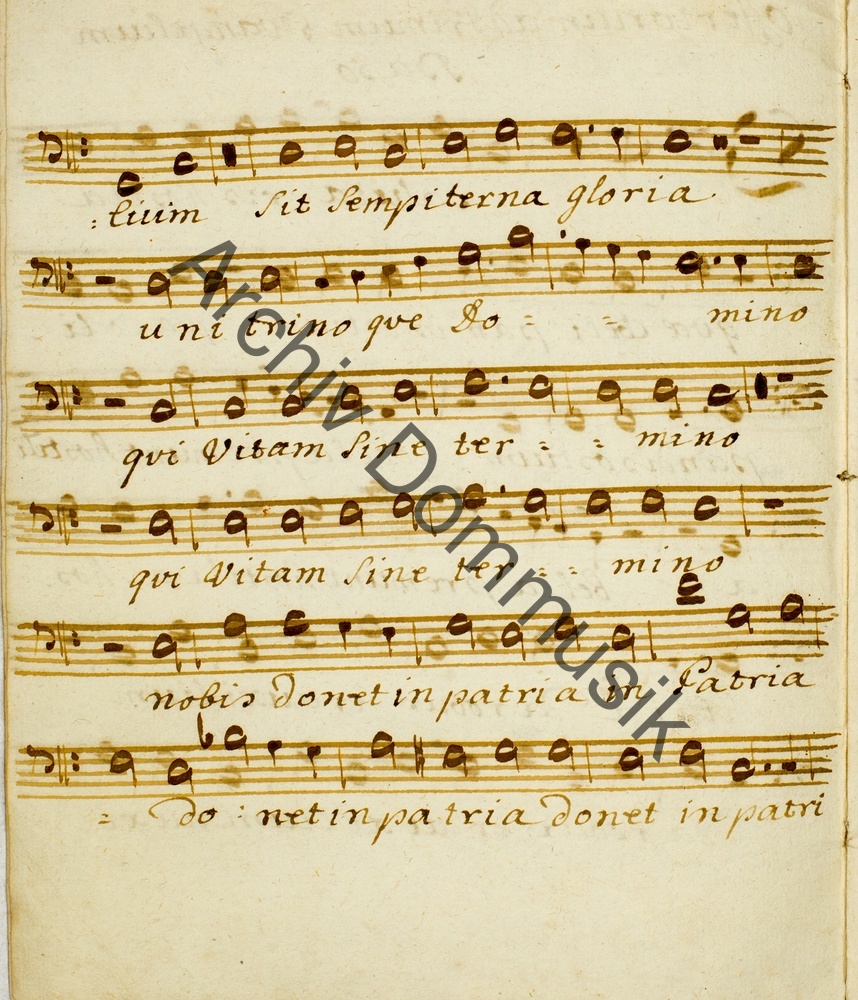 :livim sit sempiterna gloria
uni trino que Do = = mino
qvi Vitam sine ter = = mino
qvi Vitam sine ter = = mino
nobis donet in patria in Patria
= do : net in patria donet in patri
Archiv Dommusik